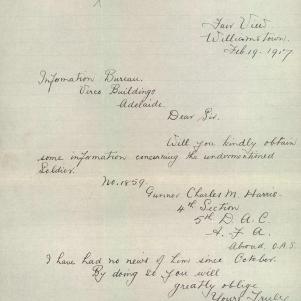 Fair View
Williamstown.
Feb. 19. 1917
Information Bureau.
Verco Buildings
Adelaide.
Dear Sir.
Will you kindly obtain
some information concerning the undermentioned
Soldier.
No. 1859.
Gunner Charles M. Harris.
4th Section
5th D. A. C
A. F. A.
Abroad. O.A.S.
I have had no news of him since October.
By doing so you will
greatly oblige
Yours Truly